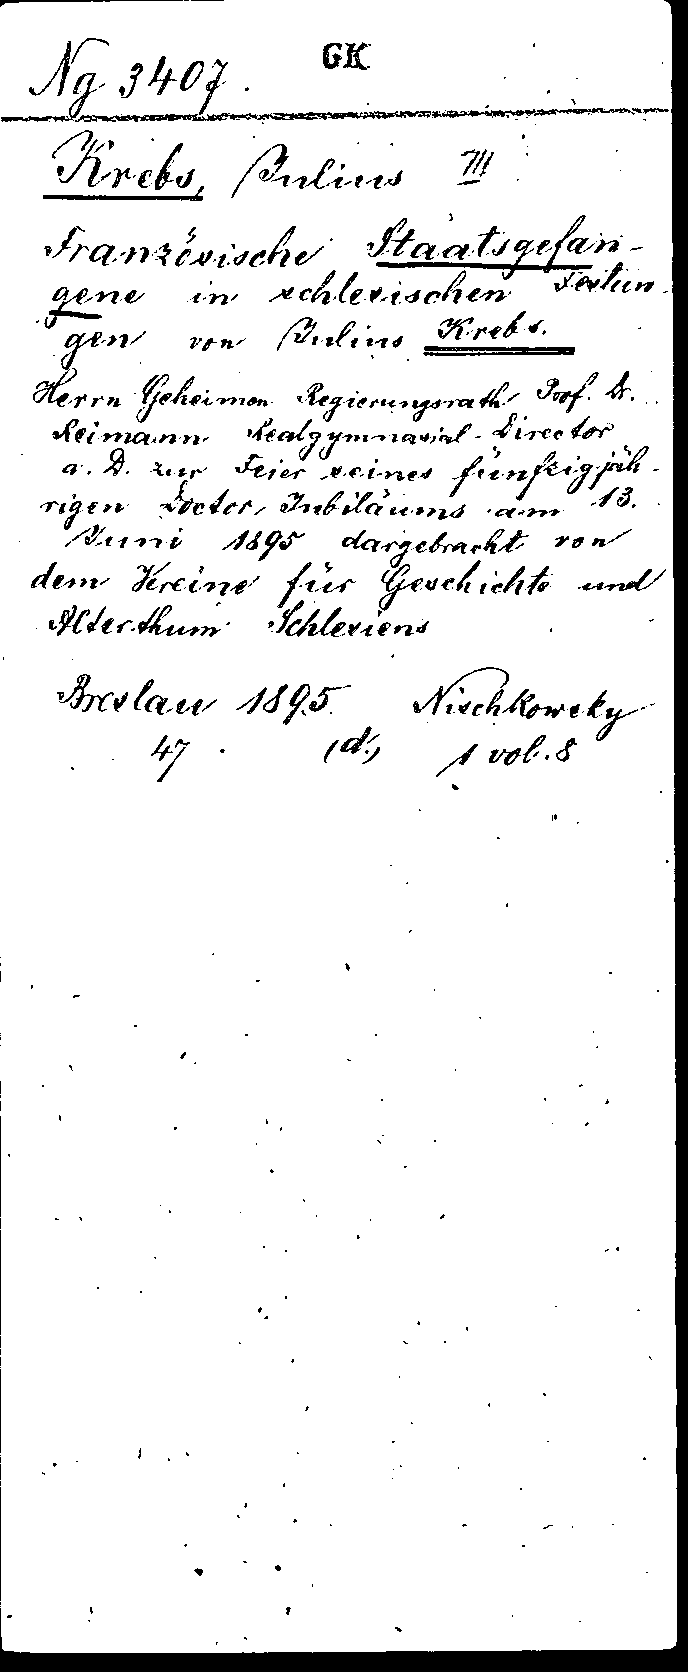 GK
Ng 3407.
Krebs, Julius III
Französische Staatsgefan-
gene in schlesischen Festun-
gen von Julius Krebs.
Herrn Geheimen Regierungsrath Prof. Dr.
Reimann Realgymnasial-Director
a. D. zur Feier seines fünfzigjäh-
rigen Doctor Jubiläums am 13.
Juni 1895 dargebracht von
dem Vereine für Geschichte und
Alterthum Schlesiens
Breslau 1895. Nischkowsky
47 (d.) 1 vol. 8